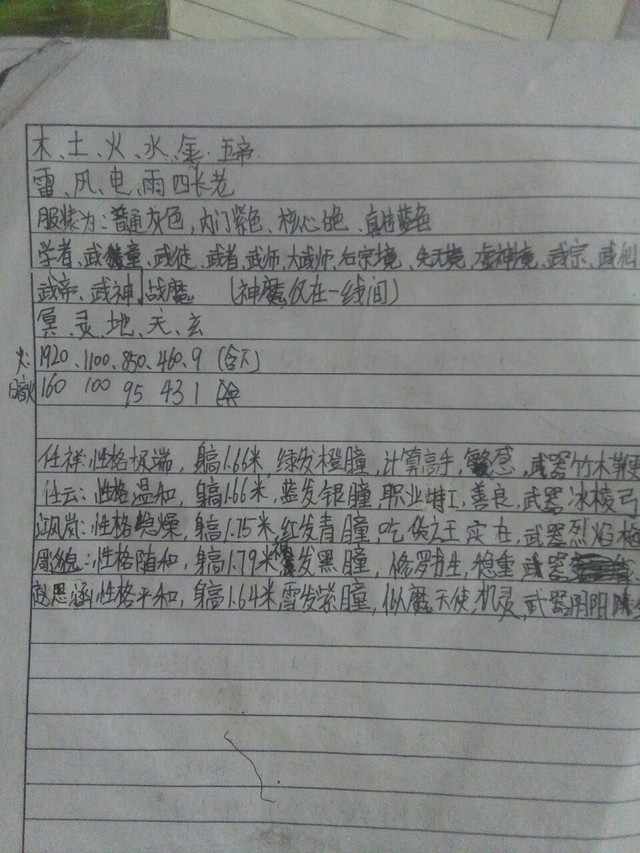 木、土、火、水、金·五帝
雷、风、电、雨四长老
服装为:普通灰色,内门紫色、核心色、真传蓝色
学者、武童、武徒、武者、武师、大武师、境、先天境、虚神境、武宗、武仙
武帝、武神、战魔 (神魔仅在一线间)
冥、灵、地、天、玄
火 1920、1100、850、460、9
暗 160 100 95 43 1
任祥:性格极端,身高1.66米,绿发橙瞳,计算高手,敏感,武器竹木鞭
任云:性格温和,身高1.66米,蓝发银瞳,职业特工,善良,武器冰棱弓
性格急燥,身高1.75米,红发青瞳,吃货之王,实在,武器烈焰
性格随和,身高1.79米,发黑瞳,修罗,稳重,武器
思涵:性格平和,身高1.64米,雪发紫瞳,似魔天使,机灵,武器阴阳